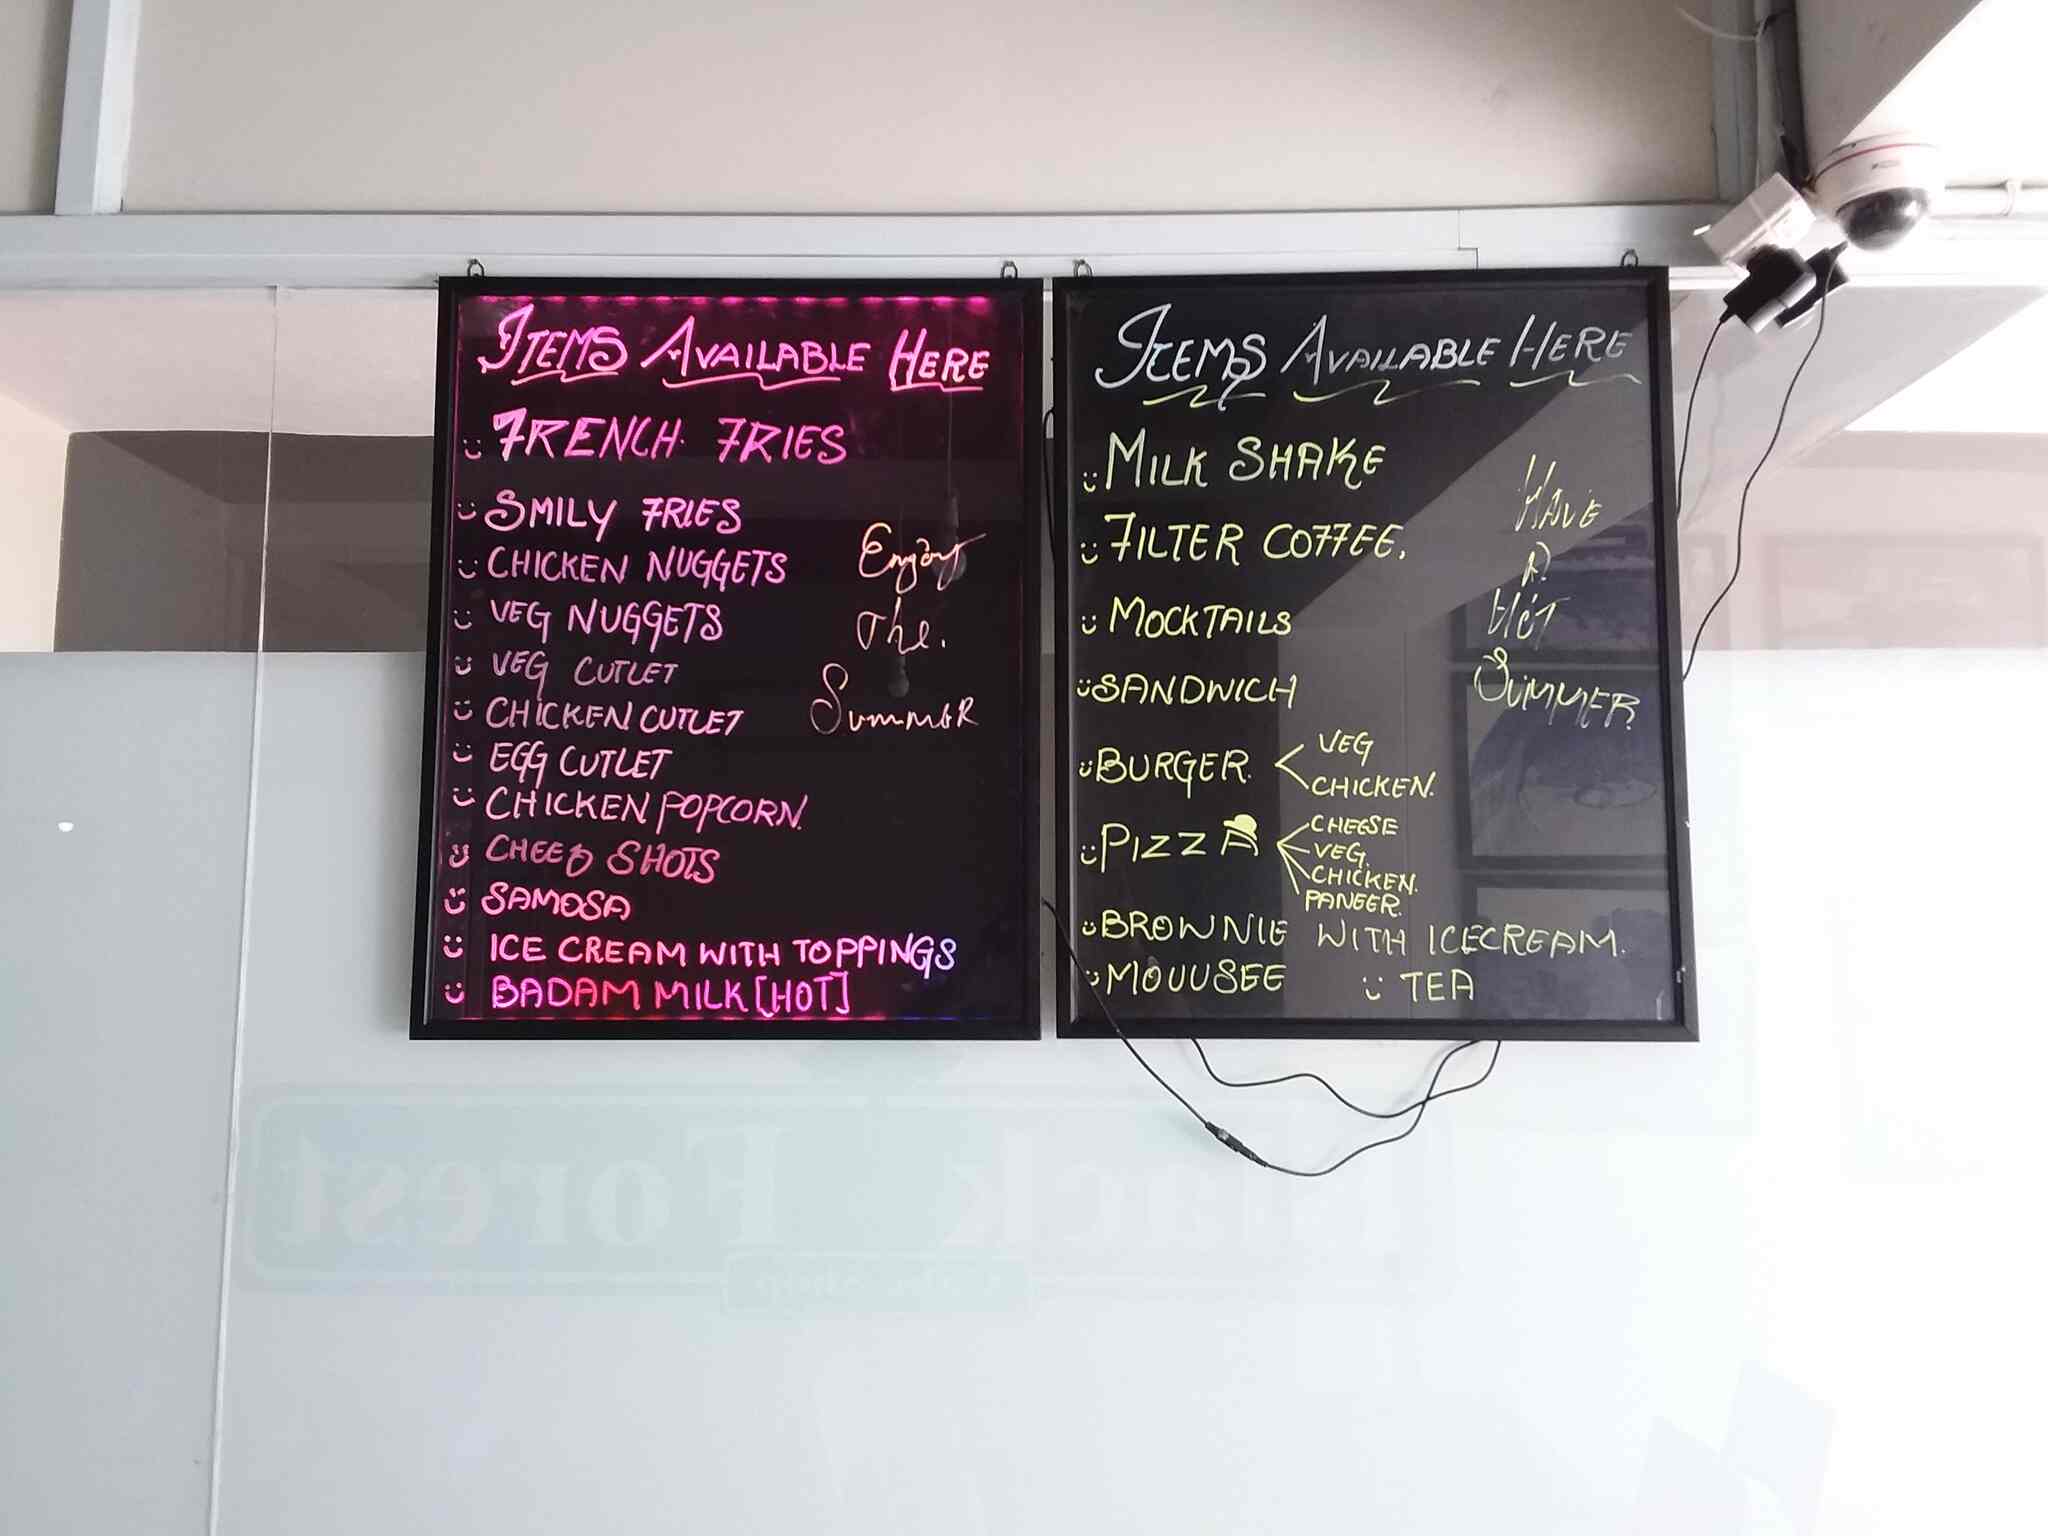 ITEMS AVAILABLE HERE
FRENCH FRIES
SMILY FRIES
CHICKEN NUGGETS
VEG NUGGETS
VEG CUTLET
CHICKEN CUTLET
EGG CUTLET
CHICKEN POPCORN.
CHEEZ SHOTS
SAMOSA
ICE CREAM WITH TOPPINGS
BADAM MILK [HOT]
Enjoy
The.
SummeR
ITEMS AVAILABLE HERE
MILK SHAKE
FILTER COFFEE.
MOCKTAILS
SANDWICH
BURGER.
VEG
CHICKEN.
PIZZA
CHEESE
VEG.
CHICKEN.
PANEER.
BROWNIE WITH ICECREAM.
MOUUSEE
TEA
HAVE
A
HOT
SUMMER
Black Forest